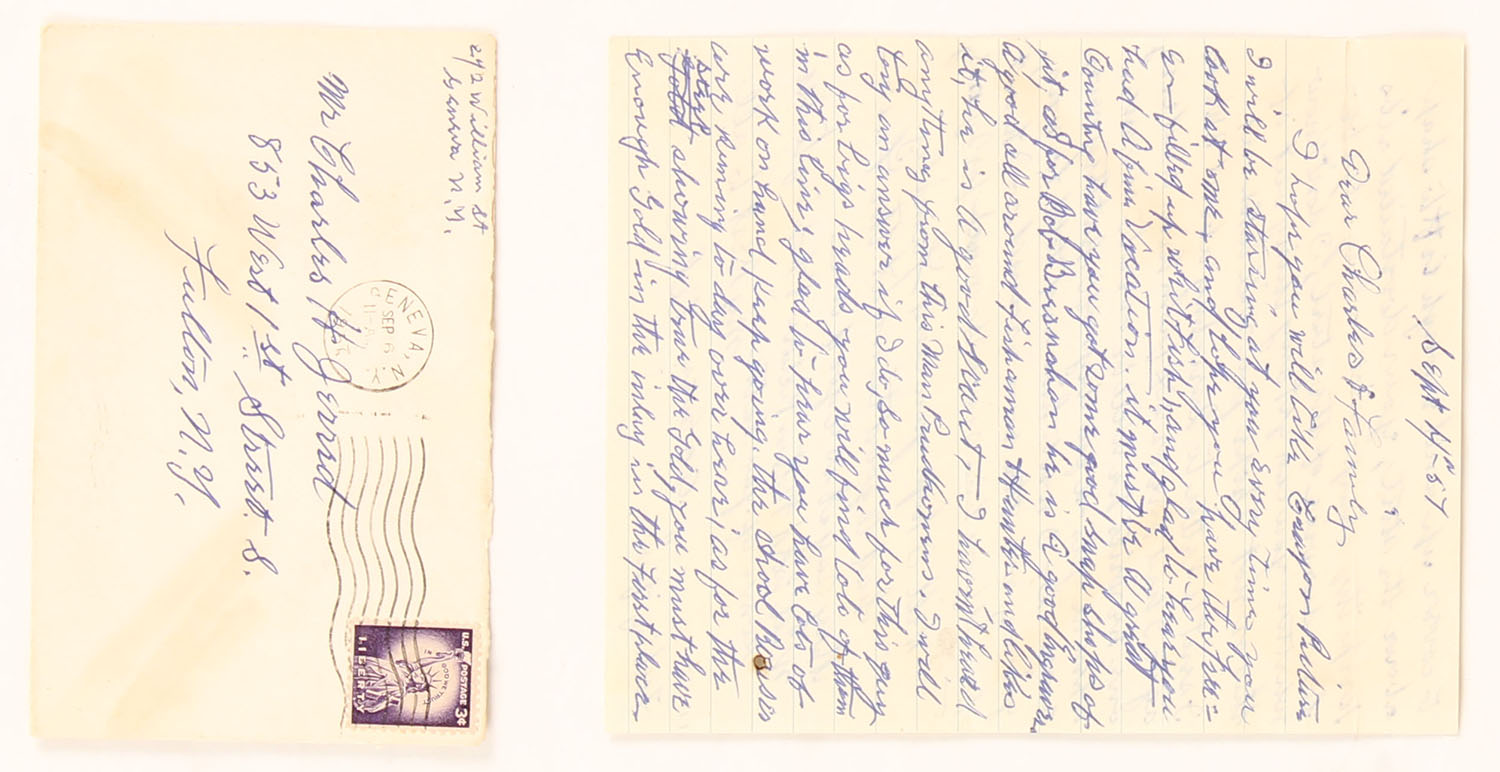 292 William St
Geneva N.Y.
Mr Charles Jerred
853 West 1st Street. S.
Fulton, N.Y.
GENEVA, N.Y.
SEP 6
11-AM
U.S. POSTAGE 3¢
LIBERTY
Sept 4th-57
Dear Charles & Family
I hope you will like
I will be staring at you every time you
look at one, and hope you have thr free-
er filled up whit Fish, and glad to hear you
had a fine Vocation. it must be a great
Country have you got some good snap shops of
it, as for Bob he is a good Engraver
a good all around Fisherman Hunter and like
it, he is a good Scout, I haven't heard
any thing from this Man Prudhomens, I will
try an answer if I do, so much for this guy
as for bigs heads you will find lots of them
in this line, glad to hear you have lots of
work on hand keep going, the school Buses
are running to day over here, as for the
steel showing true the Gold, you must have
Enough Gold in the inlay in the First place